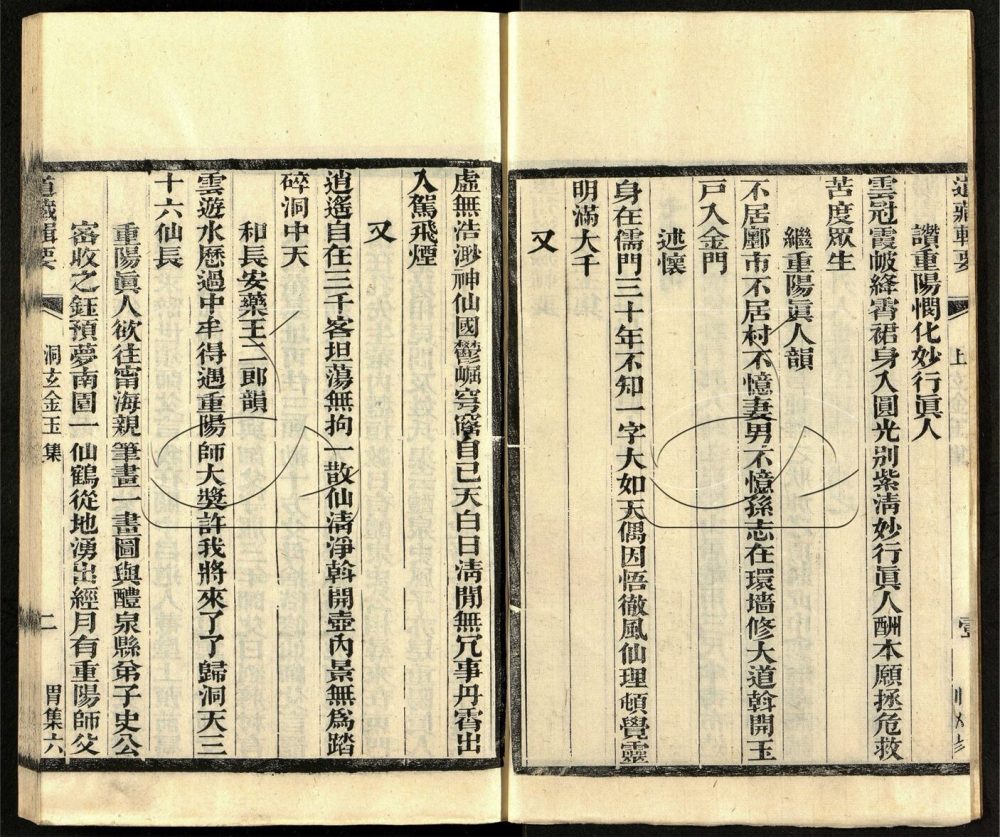 道藏輯要
上
壹
讚重陽憫化妙行眞人
雲冠霞帔絳霄裙身入圓光别紫淸妙行眞人酬本願拯危救
苦度眾生
繼重陽眞人韻
不居鄽市不居村不憶妻男不憶孫志在環墻修大道斡開玉
戸入金門
述懷
身在儒門三十年不知一字大如天偶因悟徹風仙理頓覺靈
明滿大千
又
虛無浩渺神仙國鬱崛窮窿自已天白日淸閒無冗事丹霄出
入駕飛煙
又
逍遙自在三千客坦蕩無拘一散仙淸淨斡開壺內景無爲踏
碎洞中天
和長安藥王二郎韻
雲遊水歷過中年得遇重陽師大獎許我將來了了歸洞天三
十六仙長
重陽眞人欲往甯海親筆畫一畫圖與醴泉縣弟子史公
密收之鈺預夢南園一仙鶴從地湧出經月有重陽師父
道藏輯要
洞玄金玉集
二
胃集六